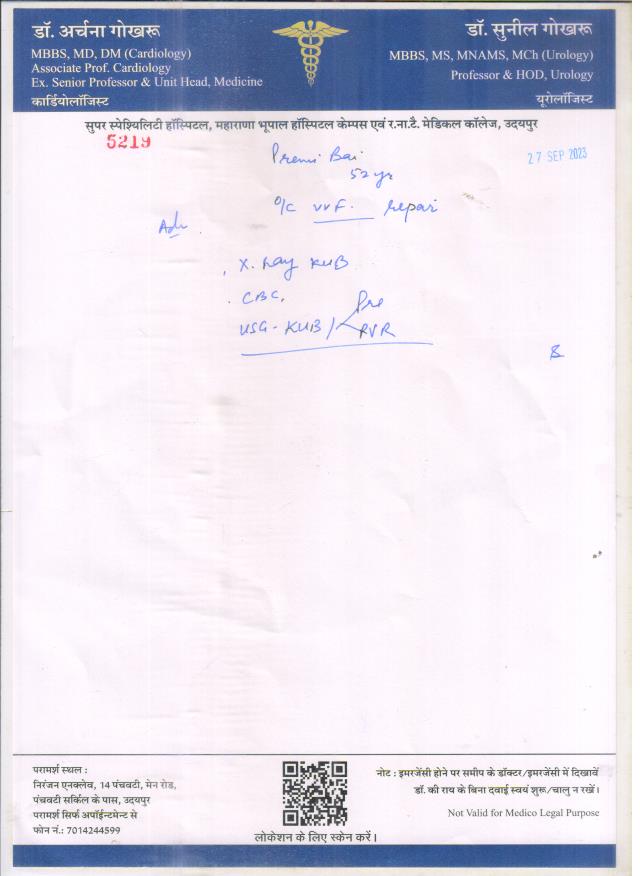 डॉ. अर्चना गोखरू
MBBS, MD, DM (Cardiology)
Associate Prof. Cardiology
Ex. Senior Professor & Unit Head, Medicine
कार्डियोलॉजिस्ट
डॉ. सुनील गोखरू
MBBS, MS, MNAMS, MCh (Urology)
Professor & HOD, Urology
यूरोलॉजिस्ट
सुपर स्पेश्यिलिटी हॉस्पिटल, महाराणा भूपाल हॉस्पिटल केम्पस एवं र.ना.टै. मेडिकल कॉलेज, उदयपुर
5219
27 SEP 2023
Premi Bai
52 yr
o/c VVF. repair
Adv.
X. Ray KUB
CBC,
USG-KUB/ Pre
PVR
परामर्श स्थल :
निरंजन एनक्लेव, 14 पंचवटी, मेन रोड,
पंचवटी सर्किल के पास, उदयपुर
परामर्श सिर्फ अपॉईन्टमेन्ट से
फोन नं.: 7014244599
लोकेशन के लिए स्केन करें।
नोट : इमरजेंसी होने पर समीप के डॉक्टर/इमरजेंसी में दिखावें
डॉ. की राय के बिना दवाई स्वयं शुरू/चालु न रखें।
Not Valid for Medico Legal Purpose